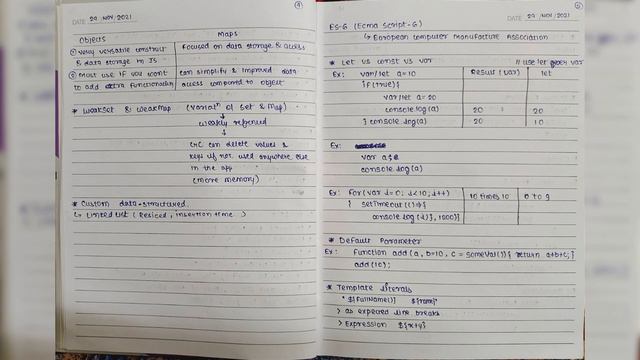 DATE 29 NOV, 2021
Objects Maps
① Very versatile construct Focused on data storage & access
& data storage in JS
② Most use if you want can simplify & improved data
to add extra functionality access compared to object
* Weakset & WeakMap (Variatⁿ of Set & Map)
↓
weakly referred
↓
GC can delete values &
keys if not used anywhere else
in the app
(more memory)
* Custom data-structured
↳ Linked List (Resized, insertion time )
DATE 29 NOV, 2021
ES-6 (Ecma Script-6)
↳ European computer manufacture Association
* Let vs const vs var // use let over var
Ex: var/let a=10 Result (var) let
if(true){
var/let a=20
console.log(a) 20 20
} console.log(a) 20 10
Ex:
var a;
console.log(a)
Ex: For(var i=0; i<10; i++) 10 times 10 0 to 9
{ setTimeout(()=>{
console.log(i)}, 1000)}
* Default Parameter
Ex: Function add (a, b=10, c = someVal()){ return a+b+c; }
add(10);
* Template literals
* ${FullName()}
> as expected line breaks
> Expression ${x+y}